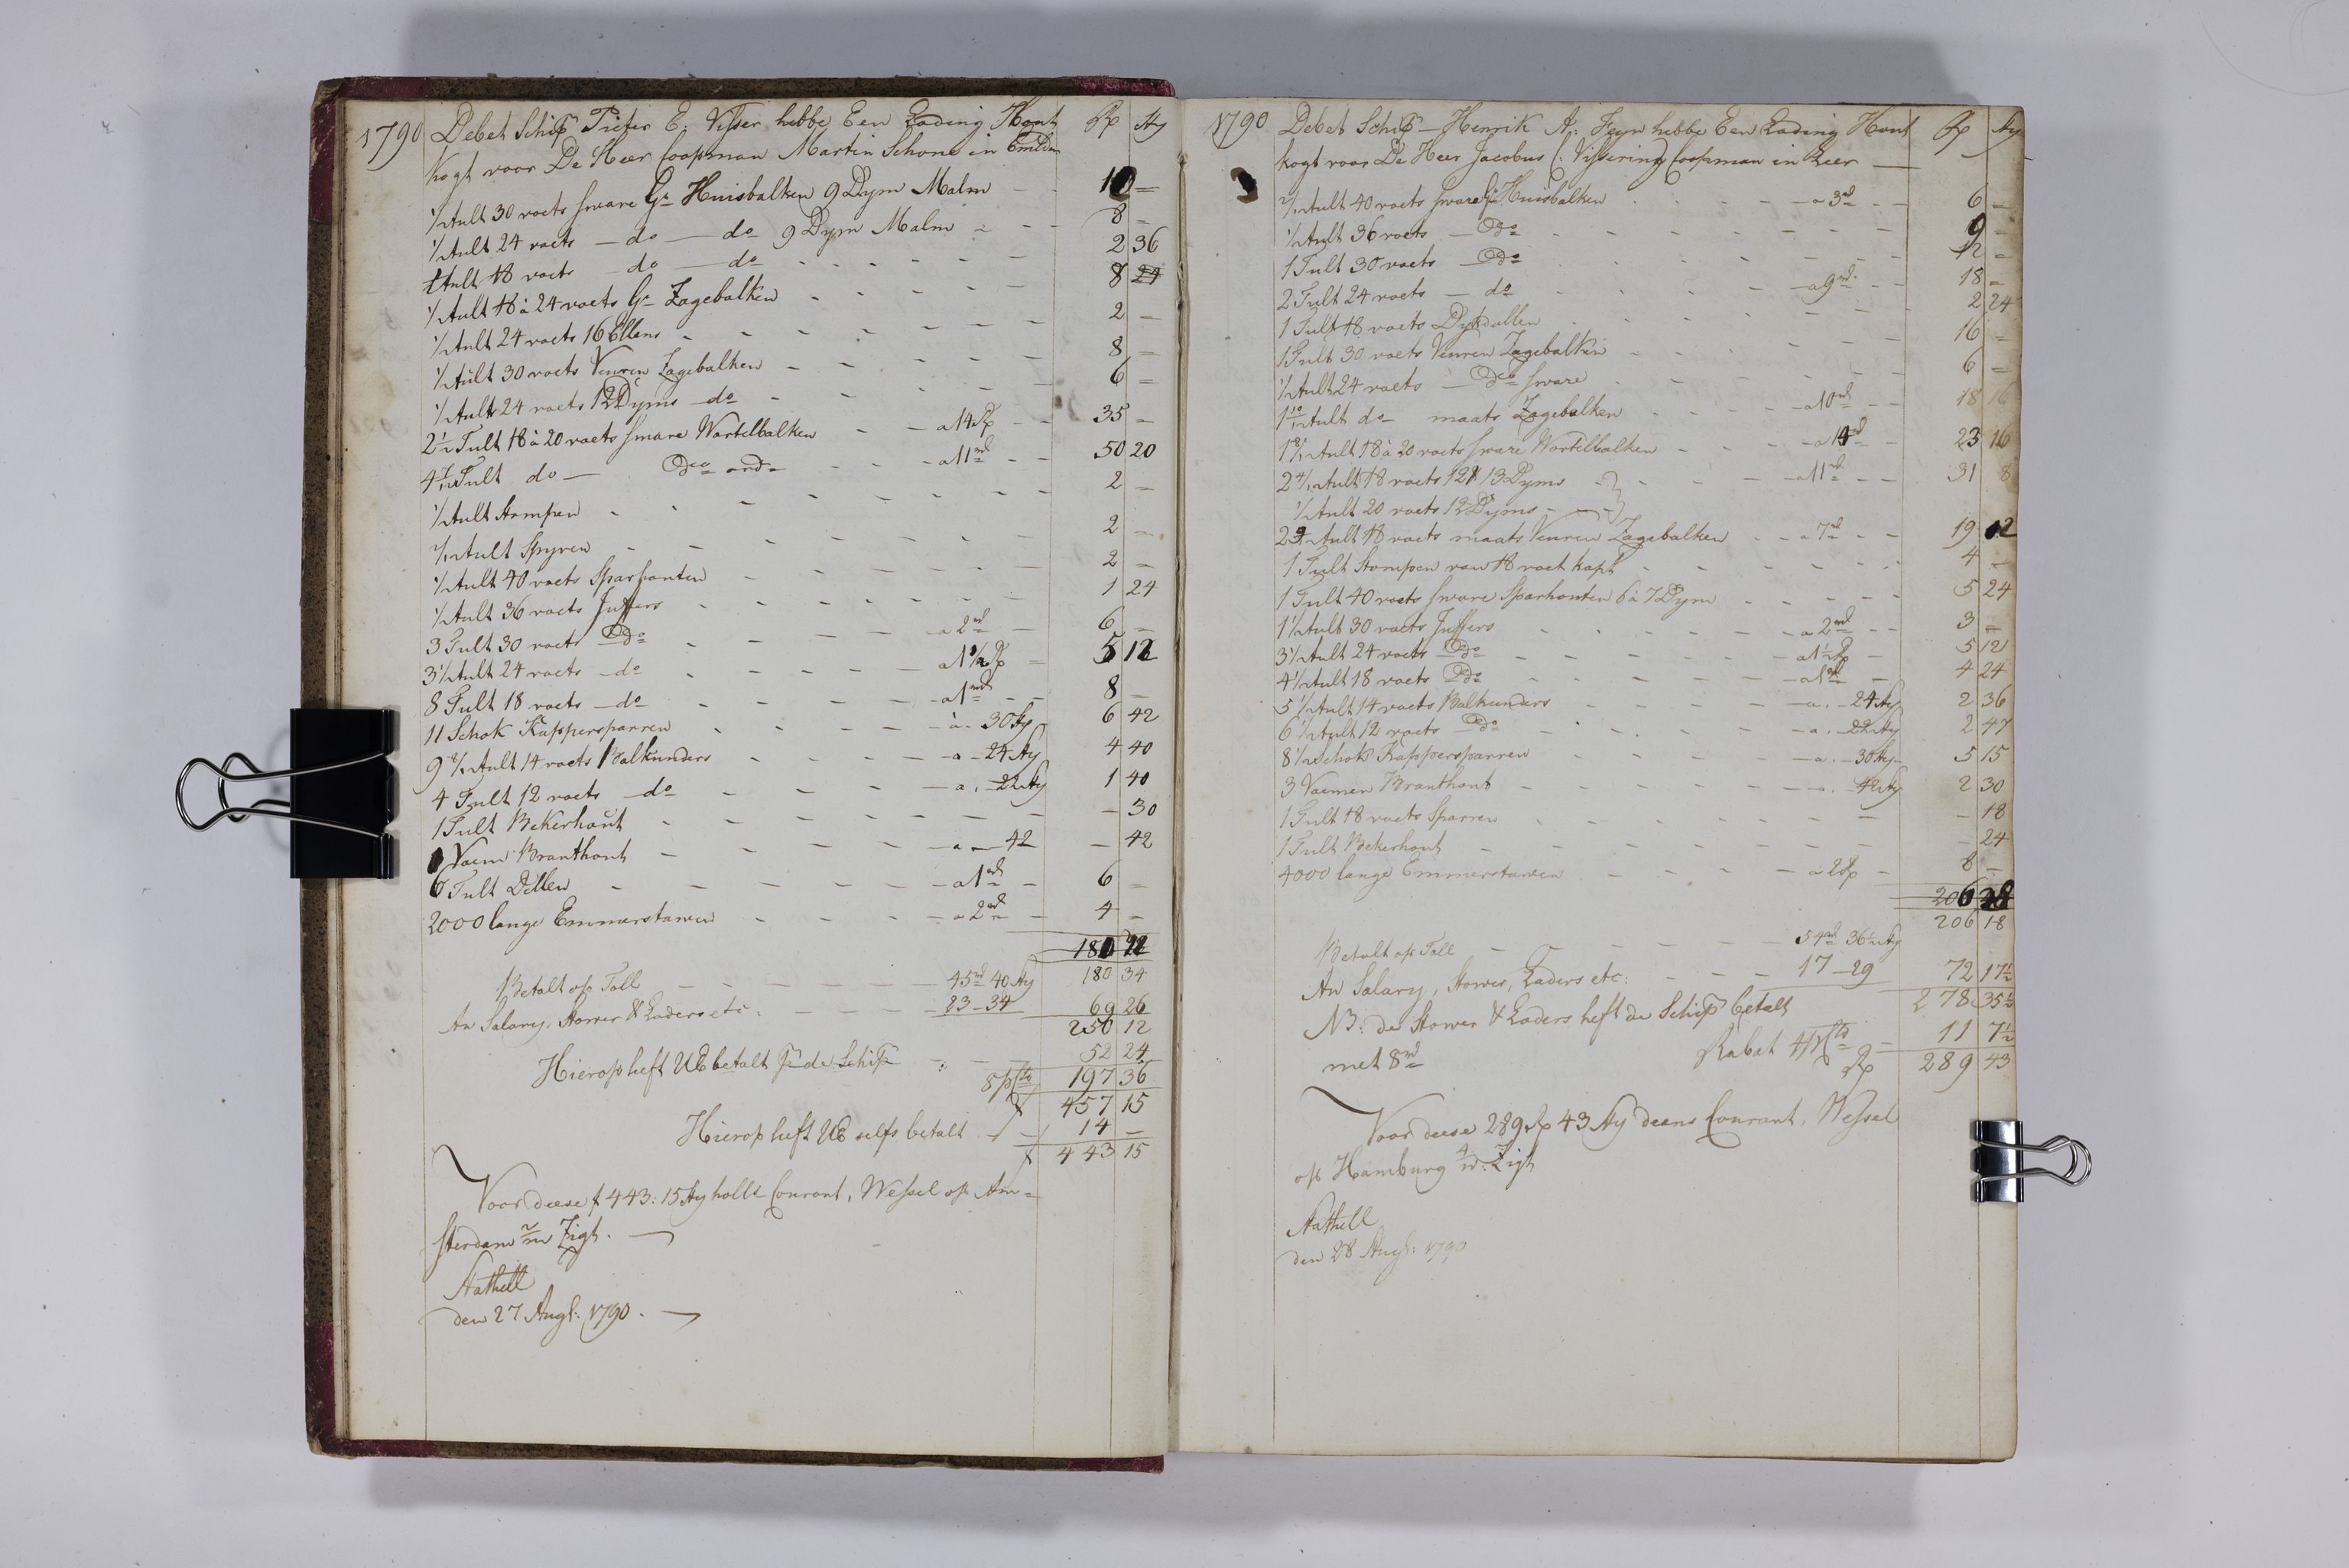 1790 Debet Schip Pieter E. Visser hebbe Een Lading Hout Rp Sty
kogt voor De Heer Coopman Martin Schone in Emden
1/2 Tult 30 voets sware Gr Huisbalken 9 Dym Malm 10 —
1/2 Tult 24 voets — do — do 9 Dym Malm 8 —
1 Tult 18 voets — do — do 2 36
1/2 Tult 18 à 24 voets Gr Zagebalken 8 24
1/2 Tult 24 voets 16 Ellens 2 —
1/2 Tult 30 voets Vuuren Zagebalken 8 —
1/2 Tult 24 voets 12 Dyms do 6 —
2 1/2 Tult 18 à 20 voets sware Wortelbalken a 14 Rp 35 —
Tult do — Dco ord a 11 rd 50 20
1/2 Tult Stompen 2 —
Tult Spyren 2 —
1/2 Tult 40 voets Sparhouten 2 —
1/2 Tult 36 voets Juffers 1 24
3 Tult 30 voets Do a 2 rd 6 —
3 1/2 Tult 24 voets do a 1 1/2 Rp 5 12
8 Tult 18 voets do a 1 rd 8 —
11 Schok Kappersparren à 30 Sty 6 42
Tult 14 voets Balkunders a 24 Sty 4 40
4 Tult 12 voets do a 22 Sty 1 40
1 Tult Bekerhout — 30
1 Vaem Branthout a 42 — 42
6 Tult Dellen a 1 rd 6 —
2000 lange Emmerstaven a 2 rd 4 —
180
180 34
Betalt op Toll 45 rd 40 Sty
An Salary, Stower & Laders etc. 23 – 34 69 26
250 12
Hierop heft UE betalt pr de Schip 52 24
197 36
f 457 15
Hierop heft UE selfs betalt f 14 —
f 443 15
Voor deese f 443: 15 Sty holls Courant, Wessel op Am=
sterdam 2/m Zigt.
Stathell
den 27 Augt: 1790.
1790 Debet Schip — Henrik A: Feyn hebbe Een Lading Hout Rp Sty
kogt voor De Heer Jacobus C. Vissering Coopman in Leer
Tult 40 voets sware Gr Huisbalken a 3 rd 6 —
1/2 Tult 36 voets — Do 9 —
1 Tult 30 voets — Do 12 —
2 Tult 24 voets — do a 9 rd 18 —
1 Tult 18 voets Dykdallen 2 24
1 Tult 30 voets Vuuren Zagebalken 16 —
1/2 Tult 24 voets — Dco sware 6 —
Tult do — maats Zagebalken a 10 rd 18 16
Tult 18 à 20 voets sware Wortelbalken a 14 rd 23 16
Tult 18 voets 12 & 13 Dyms a 11 rd 31 8
1/2 Tult 20 voets 12 Dyms
Tult 18 voets maats Vuuren Zagebalken a 7 rd 19 12
1 Tult Stompen van 18 voet kapt 4 —
1 Tult 40 voets sware Sparhouten 6 à 7 Dym 5 24
1 1/2 Tult 30 voets Juffers a 2 rd 3 —
3 1/2 Tult 24 voets Do a 1 1/2 Rp 5 12
4 1/2 Tult 18 voets Do a 1 rd 4 24
5 1/2 Tult 14 voets Balkunders a. — 24 Sty 2 36
6 1/2 Tult 12 voets Do a. — 22 Sty 2 47
8 1/2 Schok Kappersparren a. — 30 Sty 5 15
3 Vaemen Branthout a. 42 Sty 2 30
1 Tult 18 voets Sparren — 18
1 Tult Bekerhout — 24
4000 lange Emmerstaven a 2 Rp 8 —
206
206 18
Betalt op Toll 54 rd 36 1/2 Sty
An Salary, Stower, Laders etc: 17 – 29 72 17 1/2
278 35 1/2
NB: de Stower & Laders heft de Schip betalt
met 8 rd Rabat 4 p Cto 11 7 1/2
Rp 289 43
Voor deese 289 Rp 43 Sty deens Courant, Wessel
op Hamburg 4/w. Zigt
Stathell
den 28 Augt: 1790